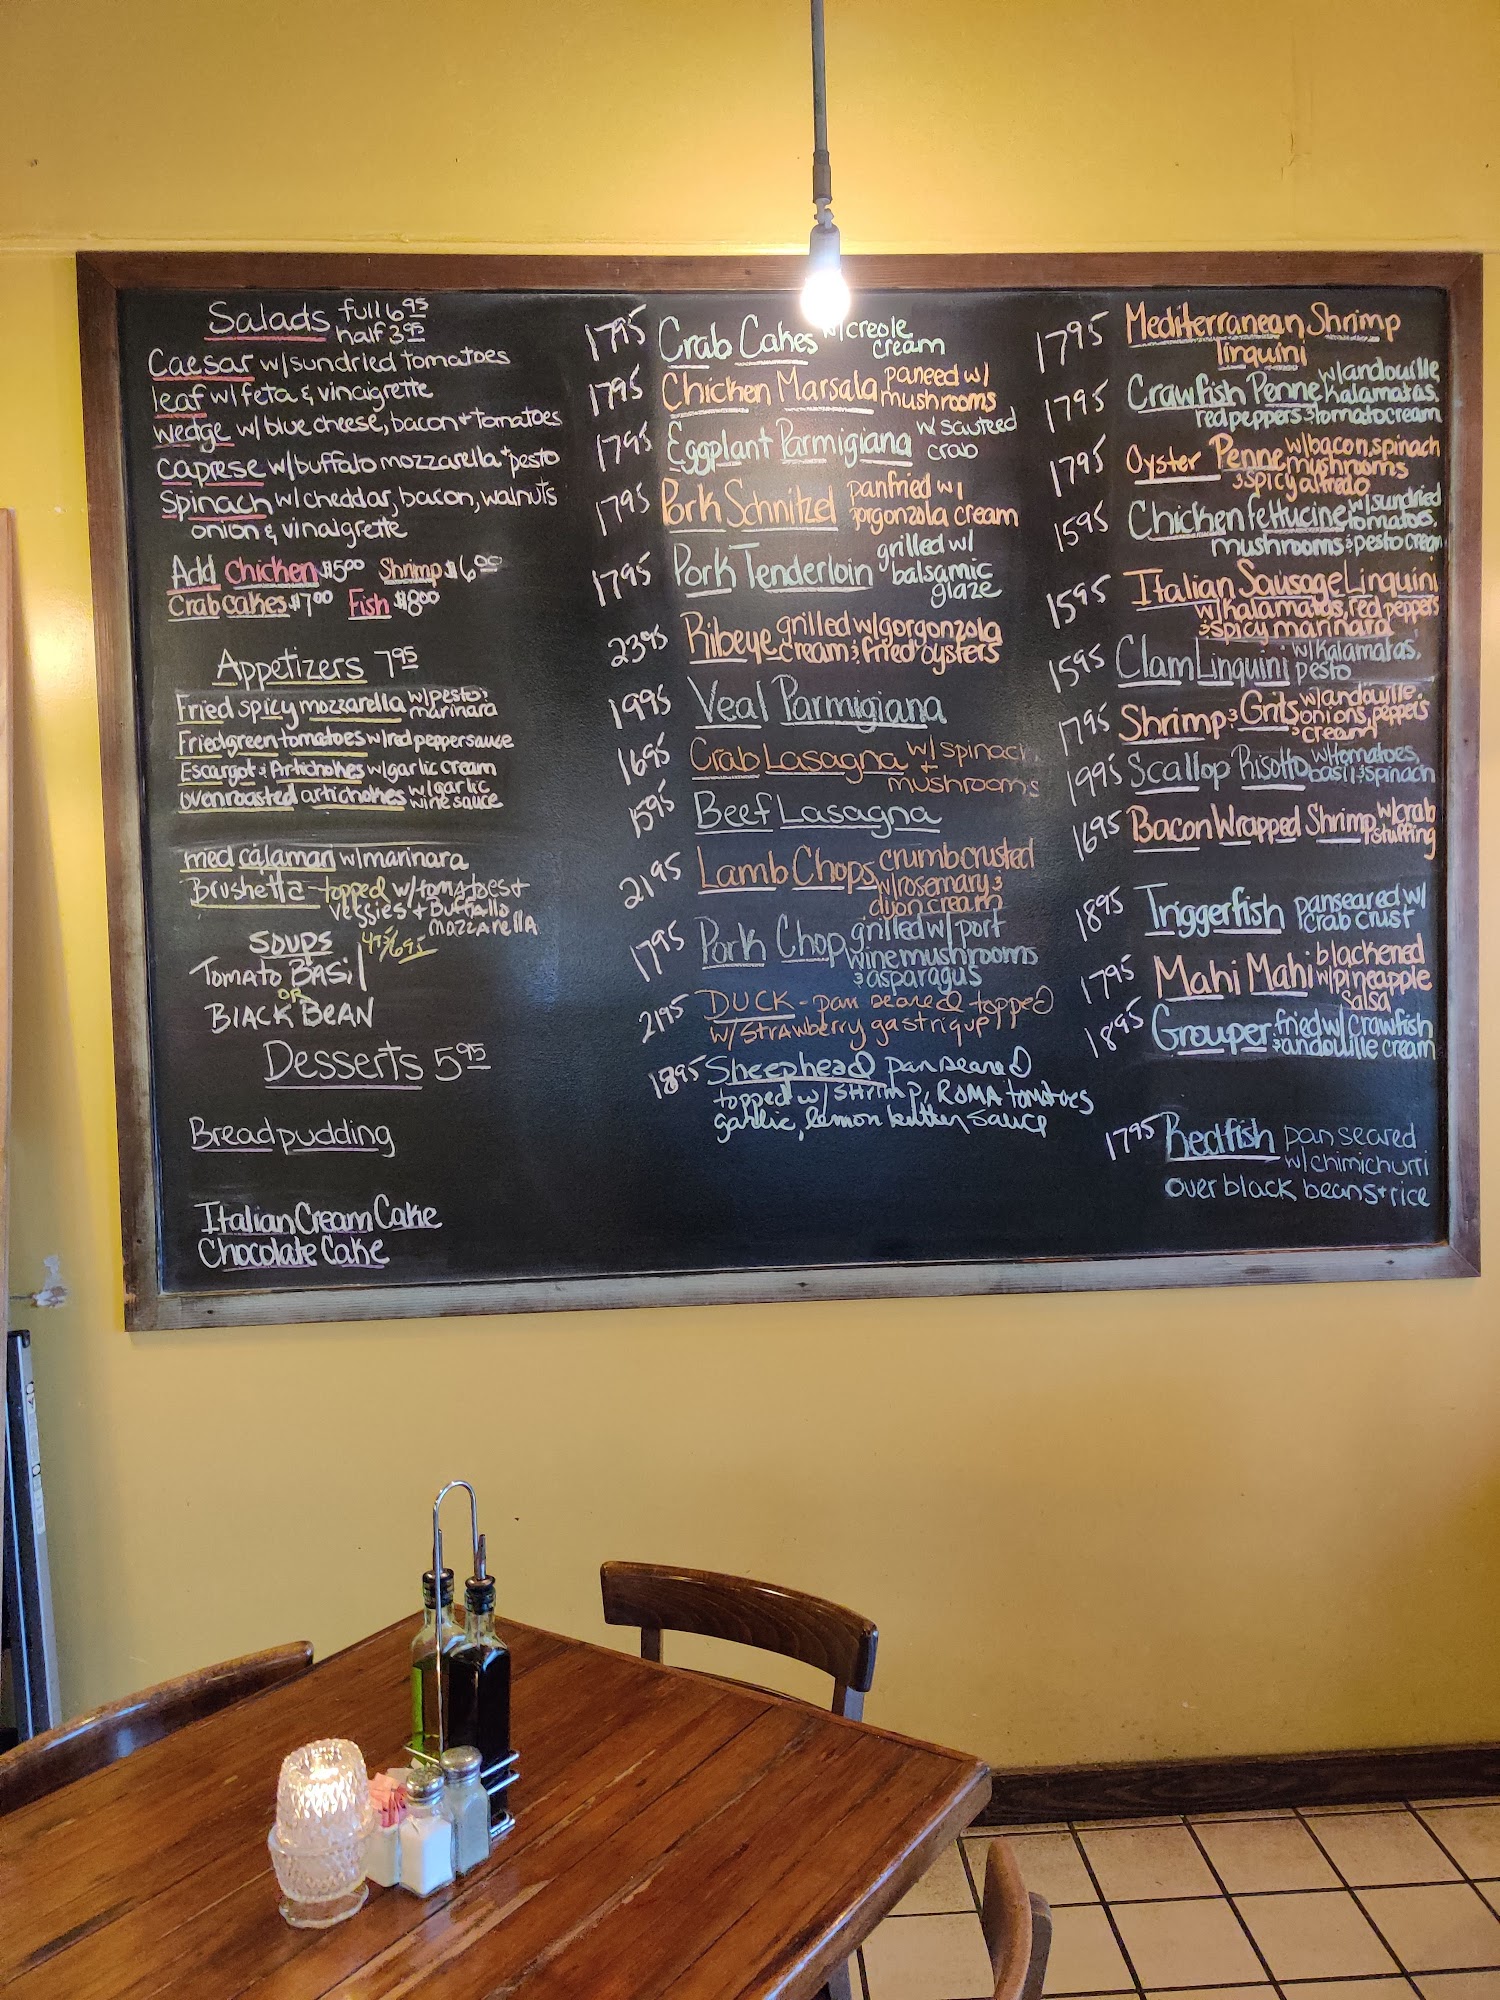 Salads full 6.95
half 3.95
Caesar w/sundried tomatoes
leaf w/feta & vinaigrette
wedge w/ blue cheese, bacon + tomatoes
caprese w/buffalo mozzarella + pesto
Spinach w/cheddar, bacon, walnuts
onion & vinaigrette
Add chicken $5.00 Shrimp $6.00
Crab cakes $7.00 Fish $8.00
Appetizers 7.95
Fried spicy mozzarella w/pesto &
marinara
Fried green tomatoes w/red pepper sauce
Escargot & Artichokes w/garlic cream
ovenroasted artichokes w/garlic
wine sauce
Fried calamari w/marinara
Brushetta - topped w/tomatoes +
veggies + Buffallo
mozzarella
Soups 4.95/6.95
Tomato Basil
OR
Black Bean
Desserts 5.95
Bread pudding
Italian Cream Cake
Chocolate Cake
17.95 Crab Cakes w/creole
cream
17.95 Chicken Marsala paneed w/
mushrooms
17.95 Eggplant Parmigiana w/ sauteed
crab
17.95 Pork Schnitzel panfried w/
gorgonzola cream
17.95 Pork Tenderloin grilled w/
balsamic
glaze
23.95 Ribeye grilled w/gorgonzola
cream & fried oysters
19.95 Veal Parmigiana
16.95 Crab Lasagna w/ spinach
+
mushrooms
15.95 Beef Lasagna
21.95 Lamb Chops crumb crusted
w/rosemary &
dijon cream
17.95 Pork Chop grilled w/ port
wine mushrooms
& asparagus
21.95 Duck - pan seared topped
w/ strawberry gastrique
18.95 Sheephead pan seared
topped w/ shrimp, Roma tomatoes
garlic, lemon butter sauce
17.95 Mediterranean Shrimp
linguini
17.95 Crawfish Penne w/andouille
kalamatas,
red peppers & tomato cream
17.95 Oyster Penne w/bacon, spinach
mushrooms
& spicy alfredo
15.95 Chicken fettucine w/sundried
tomatoes,
mushrooms & pesto cream
15.95 Italian Sausage Linguini
w/kalamatas, red peppers
& spicy marinara
15.95 Clam Linguini w/kalamatas,
pesto
17.95 Shrimp & Grits w/andouille,
onions, peppers
& cream
19.95 Scallop Risotto w/tomatoes,
basil & spinach
16.95 Bacon Wrapped Shrimp w/crab
stuffing
18.95 Triggerfish panseared w/
crab crust
17.95 Mahi Mahi blackened
w/pineapple
salsa
18.95 Grouper fried w/ crawfish
& andouille cream
17.95 Redfish pan seared
w/chimichurri
over black beans + rice